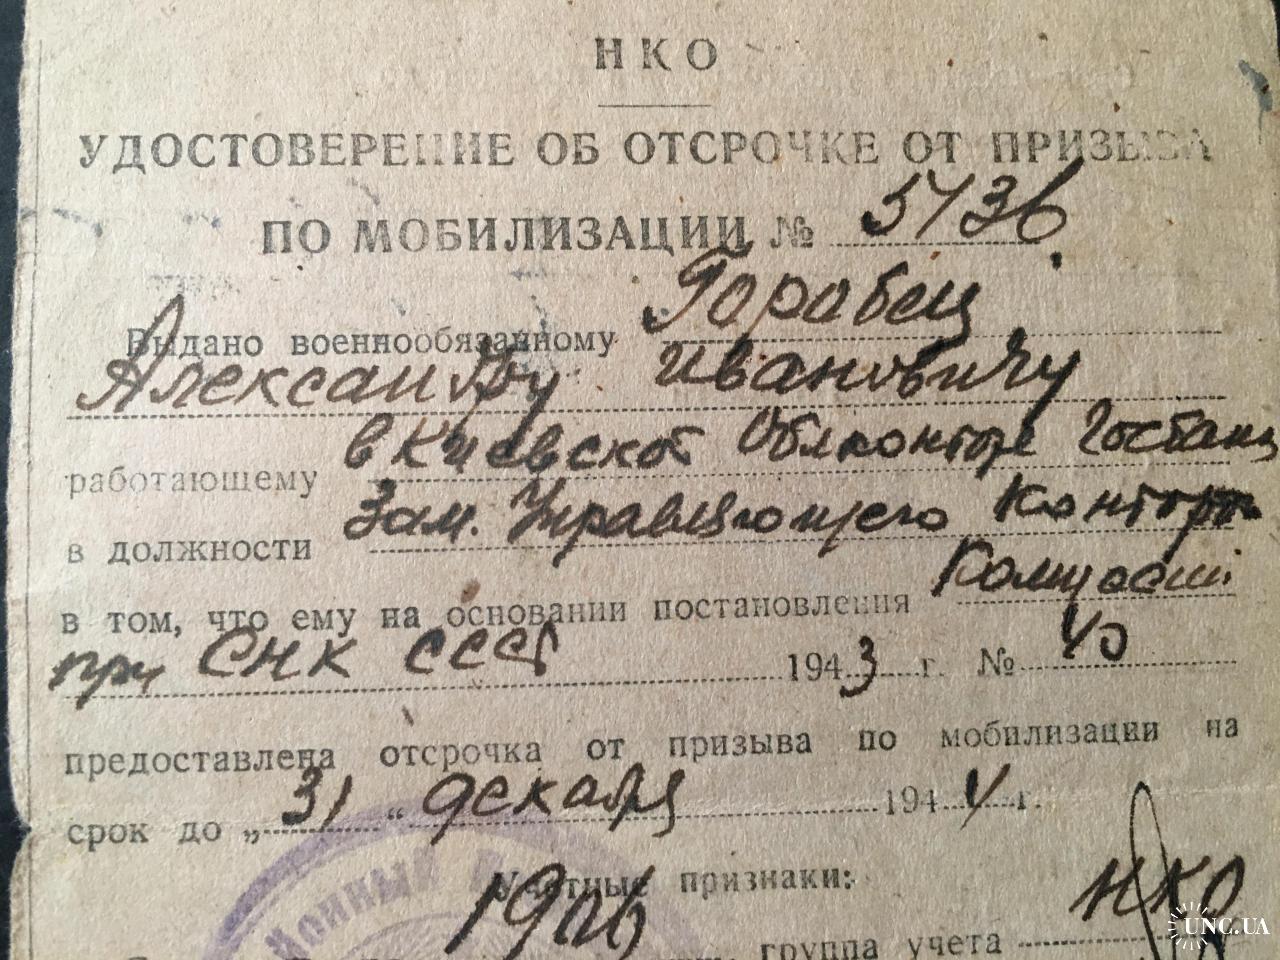 НКО
УДОСТОВЕРЕНИЕ ОБ ОТСРОЧКЕ ОТ ПРИЗЫВА
ПО МОБИЛИЗАЦИИ №
Выдано военнообязанному Горобец
Александру Ивановичу
работающему в Киевской Облконторе Госбанк
в должности Зам. Управляющего Конторы
в том, что ему на основании постановления Комиссии
при СНК СССР 1943 г. № 40
предоставлена отсрочка от призыва по мобилизации на
срок до „31“ декабря 1944 г.
Учетные признаки:
1906 группа учета НКО
UNC.UA